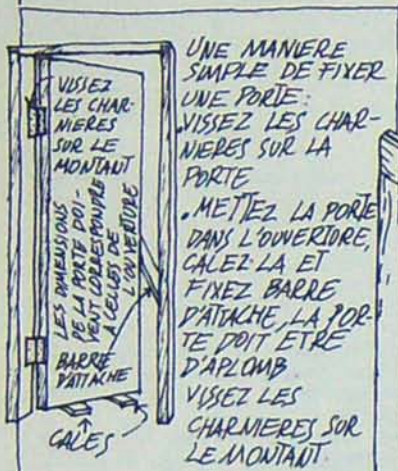 VISSEZ
LES CHAR-
NIERES
SUR LE
MONTANT
LES DIMENSIONS
DE LA PORTE DOI-
VENT CORRESPONDRE
A CELLES DE
L'OUVERTURE
BARRE
D'ATTACHE
CALES
UNE MANIERE
SIMPLE DE FIXER
UNE PORTE:
.VISSEZ LES CHAR-
NIERES SUR LA
PORTE
.METTEZ LA PORTE
DANS L'OUVERTURE,
CALEZ-LA ET
FIXEZ BARRE
D'ATTACHE, LA POR-
TE DOIT ETRE
D'APLOMB
VISSEZ LES
CHARNIERES SUR
LE MONTANT.